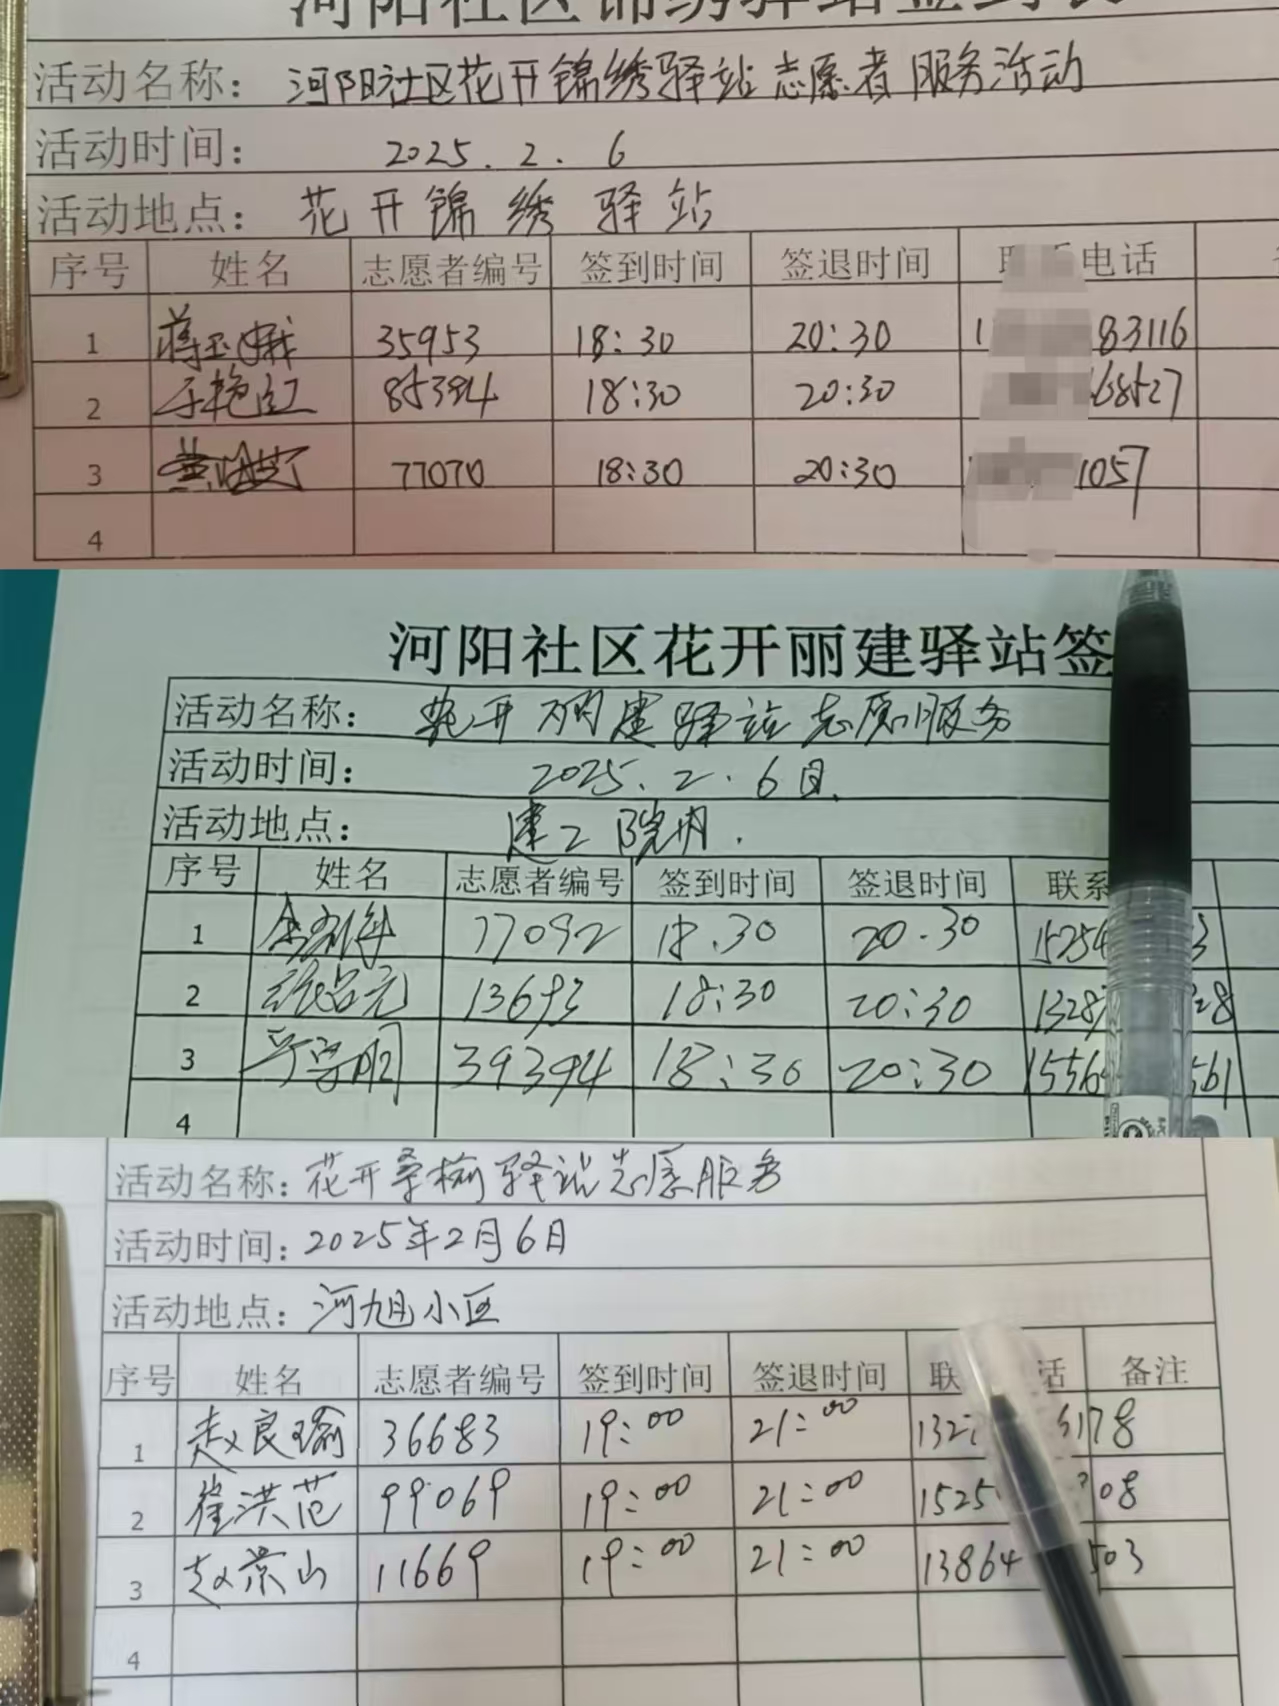 河阳社区锦绣驿站签到表
活动名称： 河阳社区花开锦绣驿站志愿者服务活动
活动时间： 2025.2.6
活动地点： 花开锦绣驿站
序号 姓名 志愿者编号 签到时间 签退时间 电话
1 蒋玉娥 35953 18:30 20:30 1 83116
2 于艳红 85384 18:30 20:30 68527
3 77070 18:30 20:30 1057
4
河阳社区花开丽建驿站签
活动名称： 花开丽建驿站志愿服务
活动时间： 2025.2.6日.
活动地点： 建工院内.
序号 姓名 志愿者编号 签到时间 签退时间 联系
1 77092 18.30 20.30 15254 3
2 张品元 13693 18:30 20:30 1328 28
3 39394 18:30 20:30 1556 561
4
活动名称：花开桑榆驿站志愿服务
活动时间：2025年2月6日
活动地点：河旭小区
序号 姓名 志愿者编号 签到时间 签退时间 联 话 备注
1 赵良瑜 36683 19:00 21:00 132 178
2 崔洪范 99069 19:00 21:00 1525 08
3 赵崇山 11669 19:00 21:00 13864 503
4